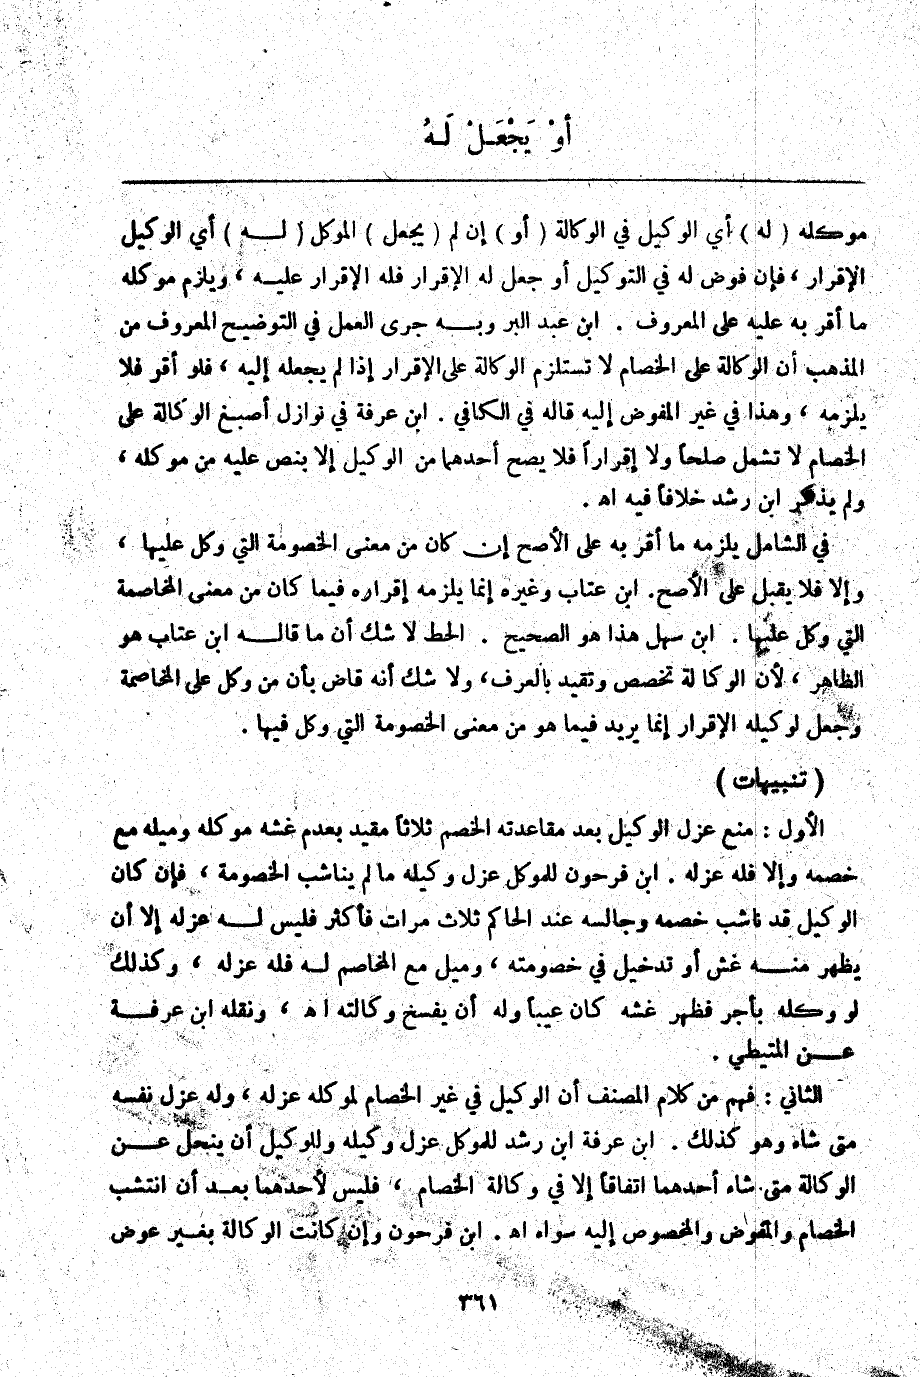 أَوْ يَجْعَلْ لَهُ
موكله ( له ) أي الوكيل في الوكالة ( أو ) إن لم ( يجعل ) الموكل ( لـه ) أي الوكيل
الإقرار ، فإن فوض له في التوكيل أو جعل له الإقرار فله الإقرار عليـه ، ويلزم موكله
ما أقر به عليه على المعروف . ابن عبد البر وبـه جرى العمل في التوضيح المعروف من
المذهب أن الوكالة على الخصام لا تستلزم الوكالة على الإقرار إذا لم يجعله إليه ، فلو أقر فلا
يلزمه ، وهذا في غير المفوض إليه قاله في الكافي . ابن عرفة في نوازل أصبغ الوكالة على
الخصام لا تشمل صلحاً ولا إقراراً فلا يصح أحدهما من الوكيل إلا بنص عليه من موكله ،
ولم يذكر ابن رشد خلافاً فيه اه .
في الشامل يلزمه ما أقر به على الأصح إن كان من معنى الخصومة التي وكل عليها ،
وإلا فلا يقبل على الأصح. ابن عتاب وغيره إنما يلزمه إقراره فيما كان من معنى المخاصمة
التي وكل عليها . ابن سهل هذا هو الصحيح . الحط لا شك أن ما قالـه ابن عتاب هو
الظاهر ، لأن الوكالة تخصص وتقيد بالعرف، ولا شك أنه قاض بأن من وكل على المخاصمة
وجعل لوكيله الإقرار إنما يريد فيما هو من معنى الخصومة التي وكل فيها .
( تنبيهات )
الأول : منع عزل الوكيل بعد مقاعدته الخصم ثلاثاً مقيد بعدم غشه موكله وميله مع
خصمه وإلا فله عزله . ابن فرحون للموكل عزل وكيله ما لم يناشب الخصومة ، فإن كان
الوكيل قد ناشب خصمه وجالسه عند الحاكم ثلاث مرات فأكثر فليس لـه عزله إلا أن
يظهر منـه غش أو تدخيل في خصومته ، وميل مع المخاصم لـه فله عزله ، وكذلك
لو وكله بأجر فظهر غشه كان عيباً وله أن يفسخ وكالته اه ، ونقله ابن عرفـة
عـن المتيطي .
الثاني : فهم من كلام المصنف أن الوكيل في غير الخصام لموكله عزله ، وله عزل نفسه
متى شاء وهو كذلك . ابن عرفة ابن رشد للموكل عزل وكيله وللوكيل أن ينحل عـن
الوكالة متى شاء أحدهما اتفاقاً إلا في وكالة الخصام ، فليس لأحدهما بعـد أن انتشب
الخصام والمفوض والمخصوص إليه سواء اه . ابن فرحون وإن كانت الوكالة بغـير عوض
٣٦١